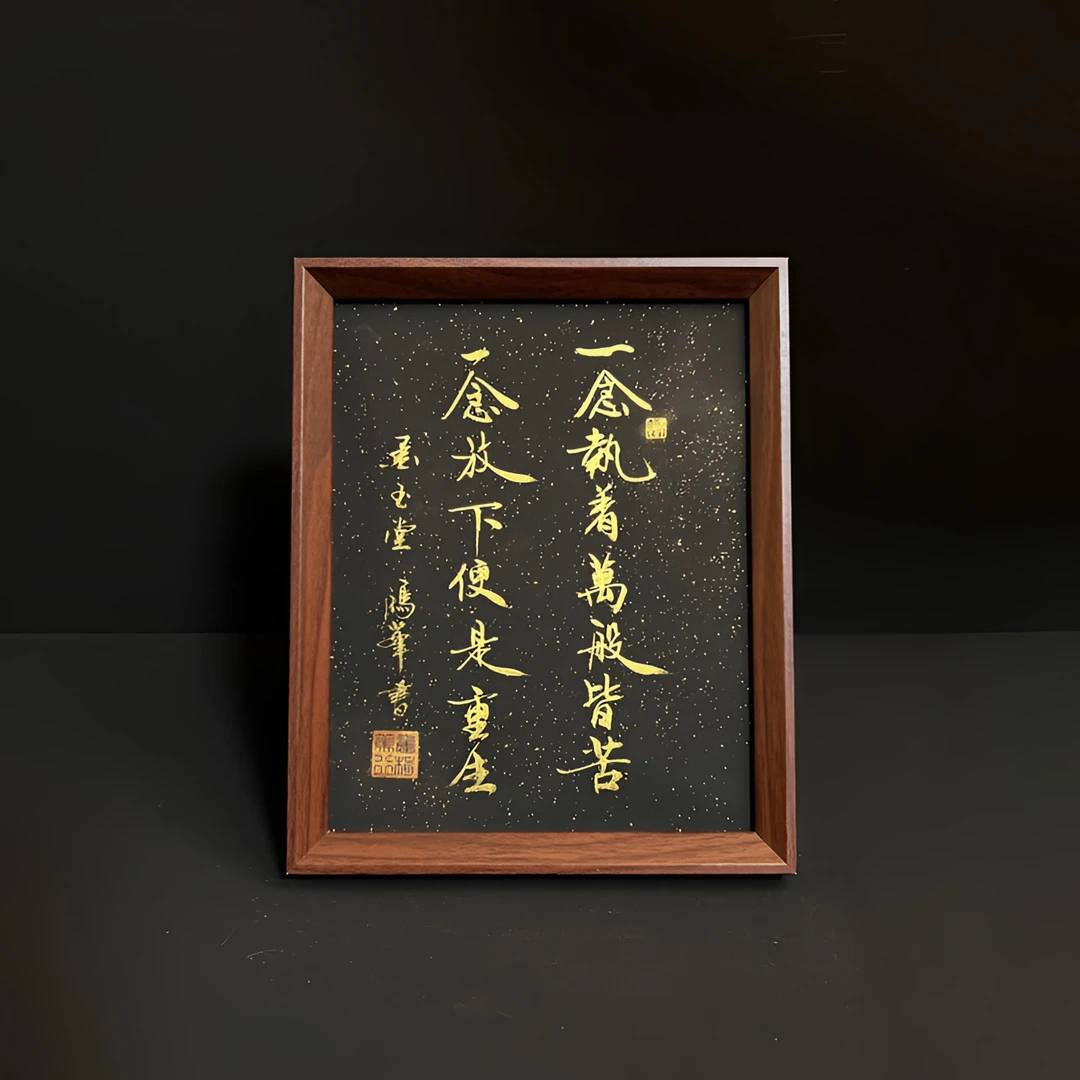 一念執着萬般皆苦
一念放下便是重生
玉堂 鴻華書